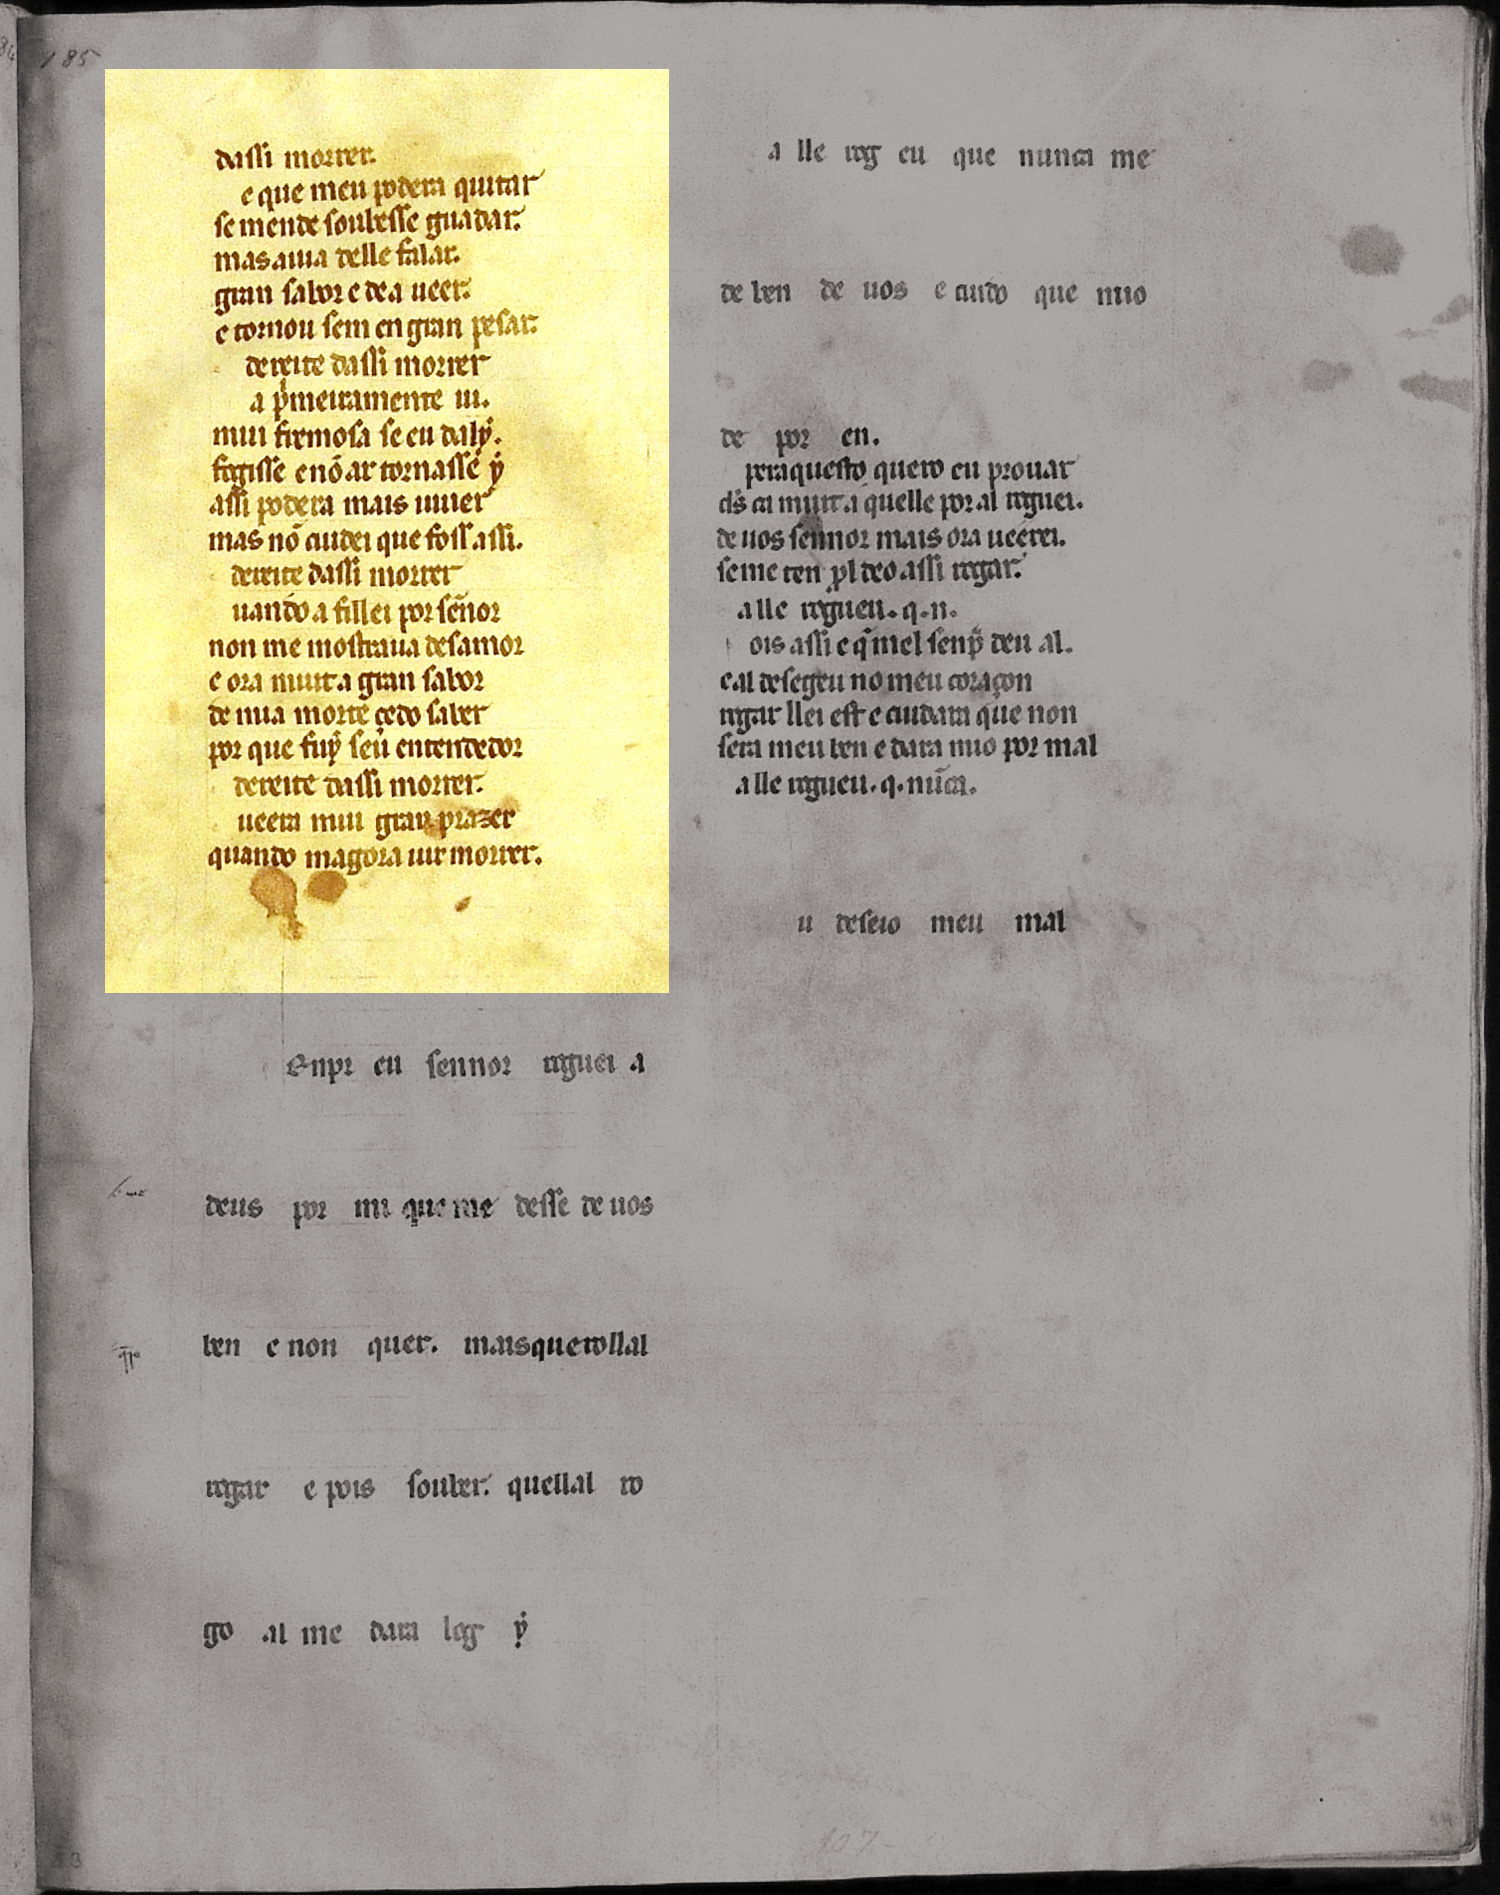 185
dassi morrer.
e que meu podera quitar
se mende soubesse guadar.
mas auia delle falar.
gran sabor e de a ueer.
e tornou sem en gran pesar.
dereite dassi morrer
a p̾meiramente ui.
mui fremosa se eu daly̾.
fogisse e nō ar tornasse y̾
assi podera mais uiuer
mas nō cuidei que foss assi.
dereite dassi morrer
uando a fillei por sen̄or
non me mostraua desamor
e ora muit a gran sabor
de mia morte çedo saber
por que fuy̾ seū entendedor
dereite dassi morrer.
ueera mui gran prazer
quando magora uir morrer.
Enpr eu sennor roguei a
deus por mi que me desse de uos
ben e non quer. mais querollal
rogar e pois souber. quellal ro
go al me dara log y̾
a lle rog eu que nunca me
de ben de uos e cuido que mio
de por en.
peraquesto quero eu prouar
d̄s ca muit a quelle por al roguei.
de uos sennor mais ora ueerei.
se me ten p̱l deo assi rogar.
a lle rogueu. q. n.
ois assi e q̄ mel senp̄ deu al.
e al desegeu no meu coraçon
rogar llei est e cuidara que non
sera meu ben e dara mio por mal
a lle rogueu. q. nūca.
u deseio meu mal